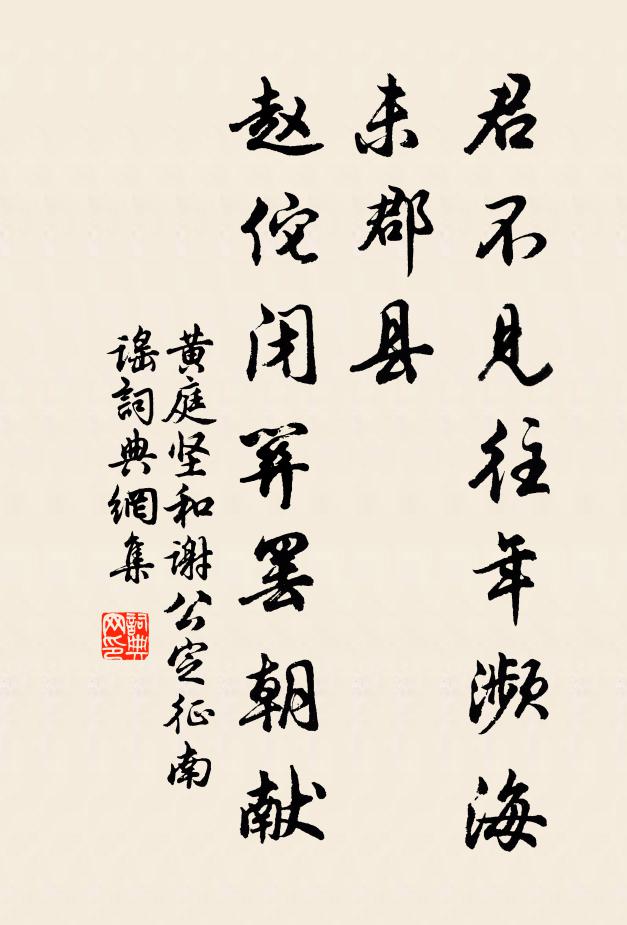 君不见往年濒海
未郡县
赵佗闭关罢朝献
黄庭坚和谢公定征南
谣詞典網集
詞典网印